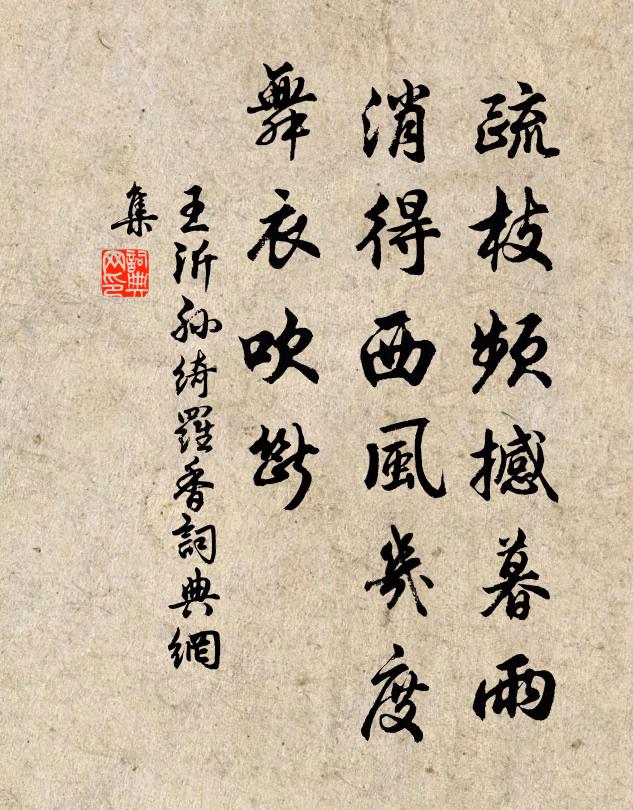 疏枝頻撼暮雨
消得西風幾度
舞衣吹斷
王沂孫綺羅香詞典網
集
詞典
网印